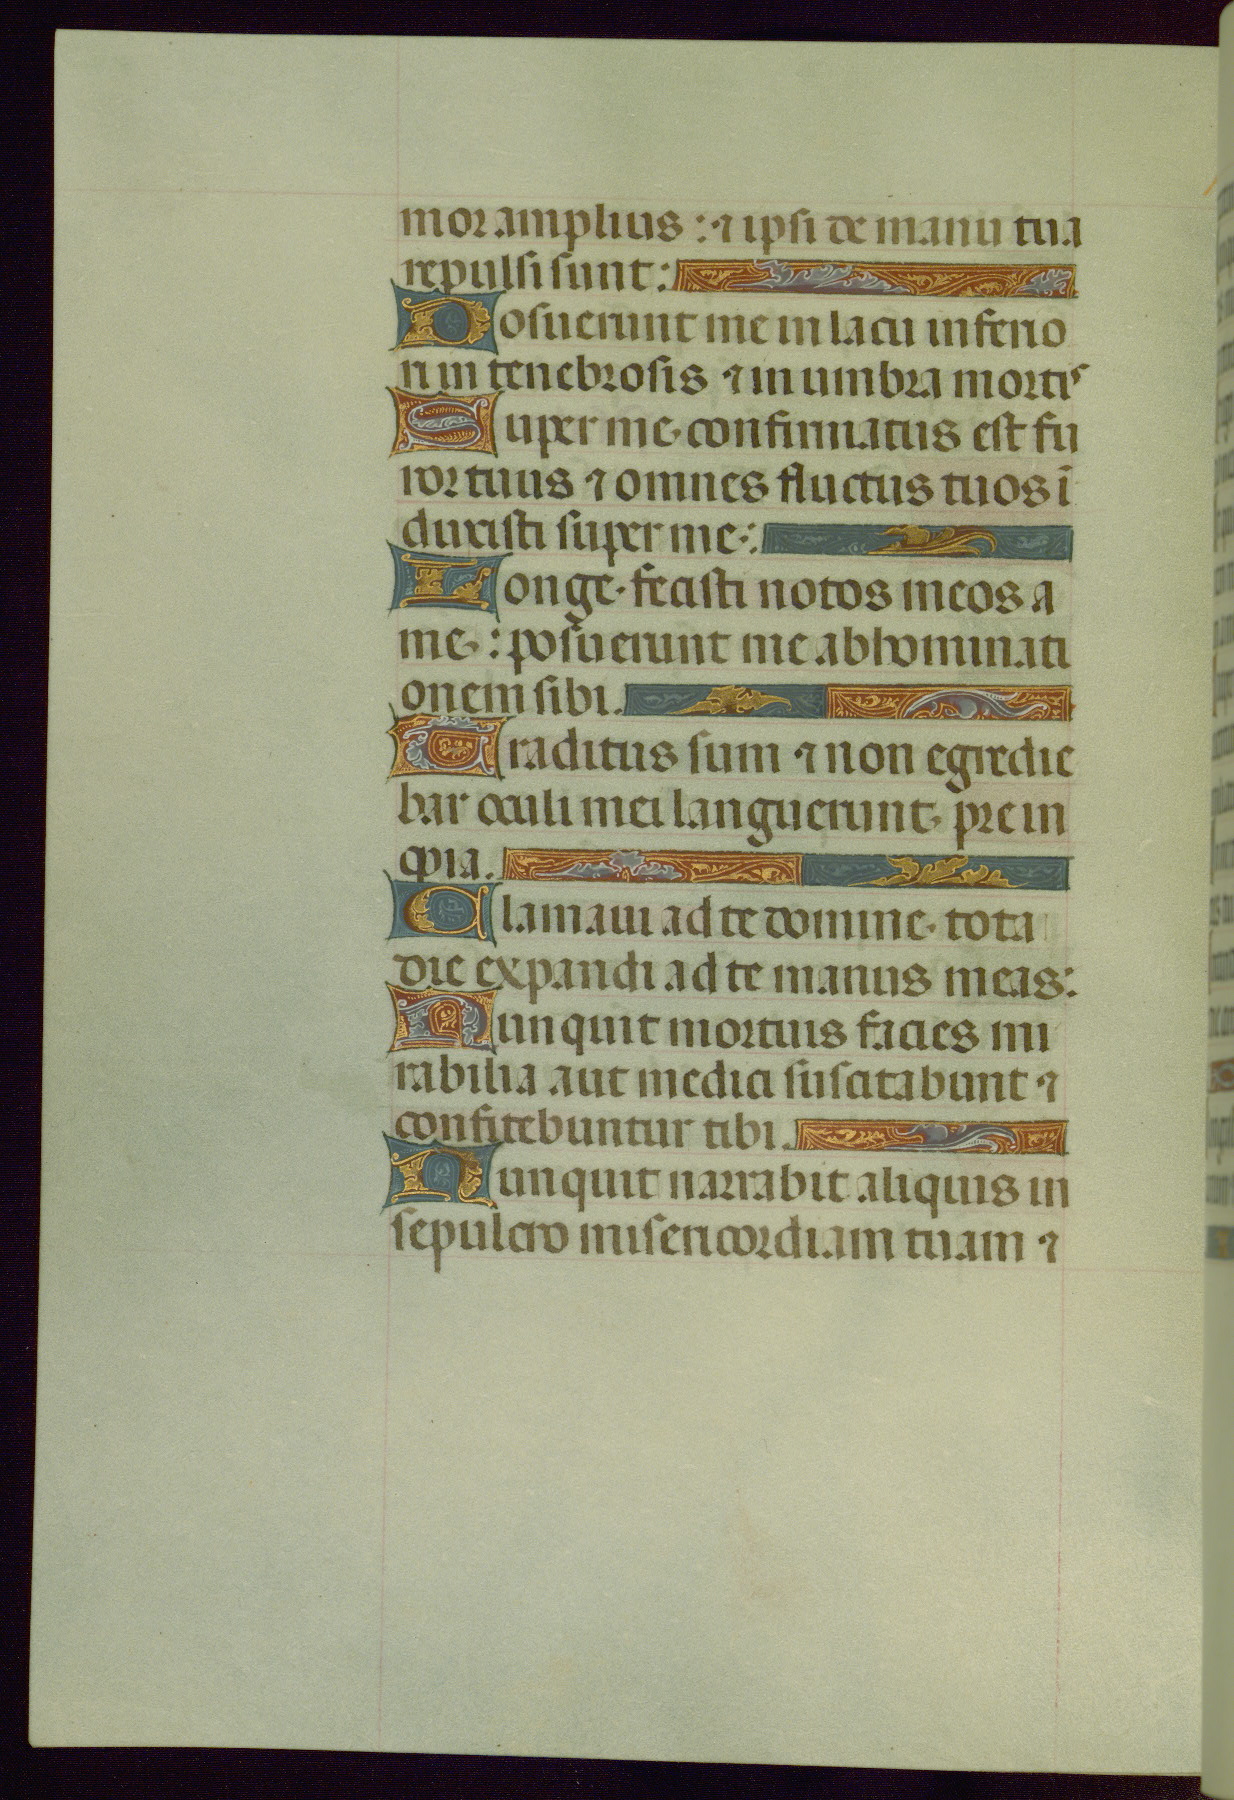 mor amplius : ⁊ ipsi de manu tua
repulsi sunt :
Posuerunt me in lacu inferio
ri in tenebrosis ⁊ in umbra mortis
Super me confirmatus est fu
ror tuus ⁊ omnes fluctus tuos ī
duxisti super me :
Longe fecisti notos meos a
me : posuerunt me abhominati
onem sibi .
Traditus sum ⁊ non egredie
bar oculi mei languerunt pre in
opia .
Clamaui ad te domine tota
die expandi ad te manus meas :
Nunquit mortuis facies mi
rabilia aut medici suscitabunt ⁊
confitebuntur tibi .
Nunquit narrabit aliquis in
sepulcro misericordiam tuam ⁊